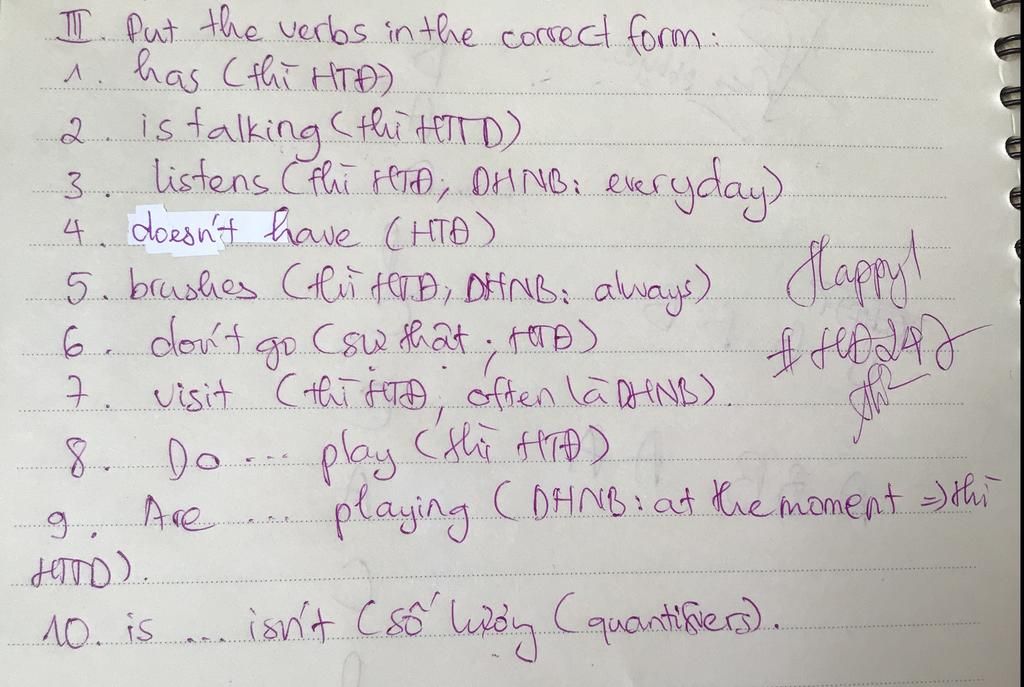 III. Put the verbs in the correct form:
1. has (thì HTĐ)
2. is talking (thì HTTD)
3. listens (thì HTĐ; DHNB: everyday)
4. doesn't have (HTĐ)
5. brushes (thì HTĐ, DHNB: always)
Happy!
6. don't go (sự thật; HTĐ)
# HĐ247
7. visit (thì HTĐ, often là DHNB).
8. Do ... play (thì HTĐ)
9. Are ... playing (DHNB: at the moment => thì
HTTD).
10. is ... isn't (số lượng (quantifiers).